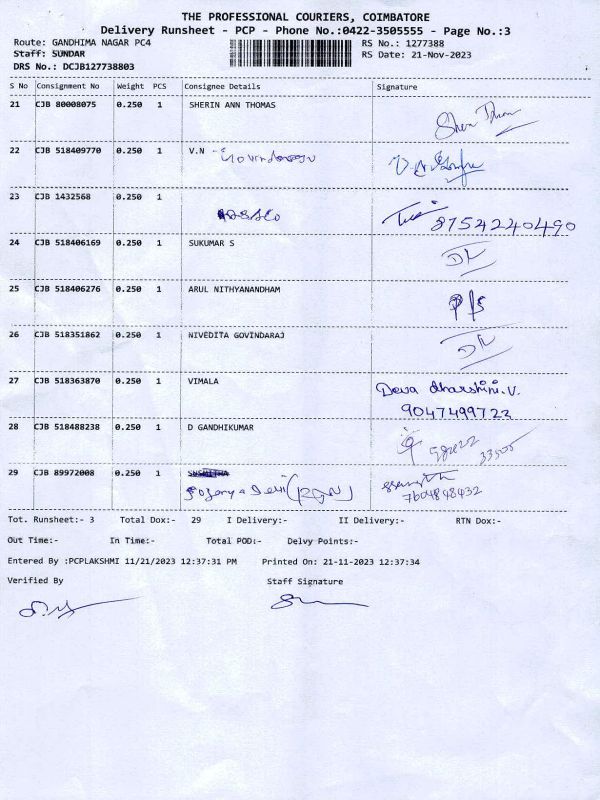 THE PROFESSIONAL COURIERS, COIMBATORE
Delivery Runsheet - PCP - Phone No.:0422-3505555 - Page No.:3
Route: GANDHIMA NAGAR PC4 RS No.: 1277388
Staff: SUNDAR RS Date: 21-Nov-2023
DRS No.: DCJB127738803
S No Consignment No Weight PCS Consignee Details Signature
21 CJB 80008075 0.250 1 SHERIN ANN THOMAS
22 CJB 518409770 0.250 1 V.N - Govindaraju
23 CJB 1432568 0.250 1
8754224 0490
24 CJB 518406169 0.250 1 SUKUMAR S
25 CJB 518406276 0.250 1 ARUL NITHYANANDHAM
26 CJB 518351862 0.250 1 NIVEDITA GOVINDARAJ
27 CJB 518363870 0.250 1 VIMALA Deva dharshini.V.
9047499723
28 CJB 518488238 0.250 1 D GANDHIKUMAR
29 CJB 89972008 0.250 1 SUSMITHA
7604848432
Tot. Runsheet:- 3 Total Dox:- 29 I Delivery:- II Delivery:- RTN Dox:-
Out Time:- In Time:- Total POD:- Delvy Points:-
Entered By :PCPLAKSHMI 11/21/2023 12:37:31 PM Printed On: 21-11-2023 12:37:34
Verified By Staff Signature